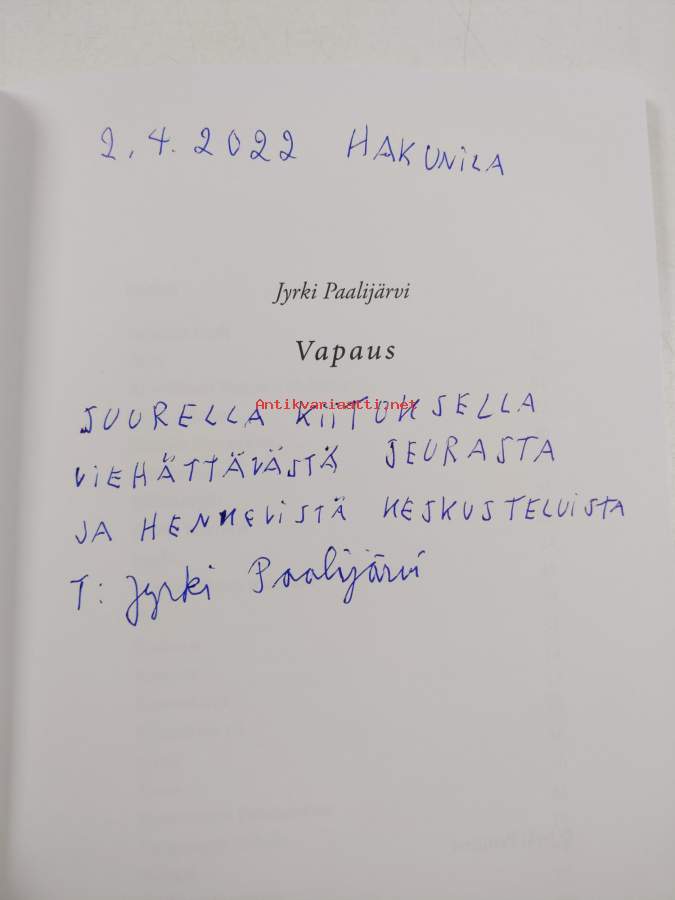 2.4.2022 HAKUNILA
Jyrki Paalijärvi
Vapaus
Antikvariaatti.net
SUURELLA KIITOKSELLA
VIEHÄTTÄVÄSTÄ SEURASTA
JA HENKEVISTÄ KESKUSTELUISTA
T: Jyrki Paalijärvi